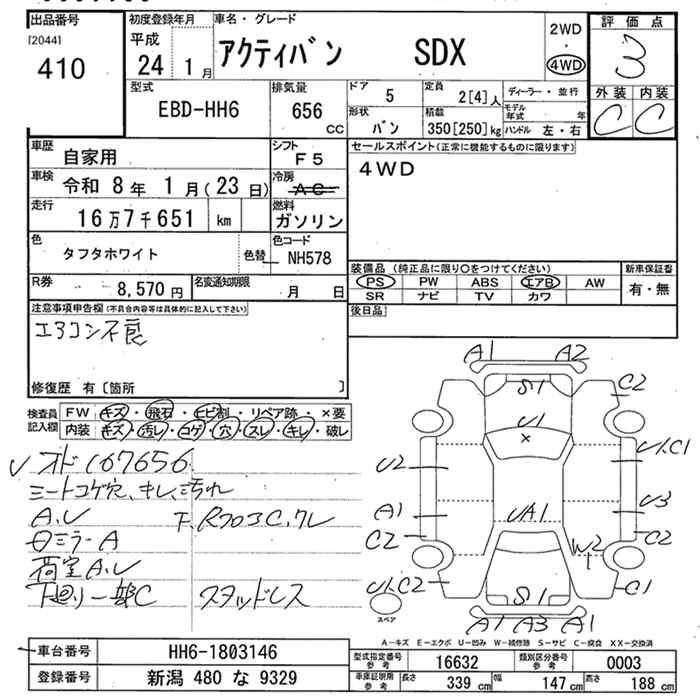 出品番号
[2044]
410
初度登録年月
平成
24 1月
車名・グレード
アクティバン SDX
2WD
・
4WD
評価点
3
外装 内装
C C
型式
EBD-HH6
排気量
656
CC
ドア
5
形状
バン
定員
2[4]人
積載
350[250]kg
ディーラー・並行
モデル年式 年
ハンドル 左・右
車歴
自家用
シフト
F5
車検
令和 8年 1月(23日)
冷房
AC
走行
16万7千651 km
燃料
ガソリン
色
タフタホワイト
色替
色コード
NH578
R券
8,570円
名変通知期限
月 日
セールスポイント(正常に機能するものに限ります)
4WD
装備品(純正品に限り○をつけてください)
PS PW ABS エアB AW
SR ナビ TV カワ
新車保証書
有・無
後日品
注意事項申告欄(不具合内容等は具体的に記入して下さい)
エアコン不良
修復歴 有[箇所 ]
検査員
記入欄
FW キズ・飛石・ヒビ割・リペア跡・×要
内装 キズ・汚レ・コゲ・穴・スレ・キレ・破レ
オド167656
シートコゲ穴、キレ、汚れ
A.U
F、RフロアC、クレ
ミラーA
荷室A.U
下廻り一部C スタッドレス
A1 A2
S1
C2
U1
×
U2
U1.C1
A1
UA1
U3
C2
C2
W2
U1.C2
S1
C1
A1 A3 A1
スペア
A-キズ E-エクボ U-凹み W-補修跡 S-サビ C-腐食 XX-交換済
車台番号
HH6-1803146
登録番号
新潟 480 な 9329
型式指定番号
参考
16632
類別区分番号
参考
0003
車庫証明用
参考
長さ 339cm 幅 147cm 高さ 188cm